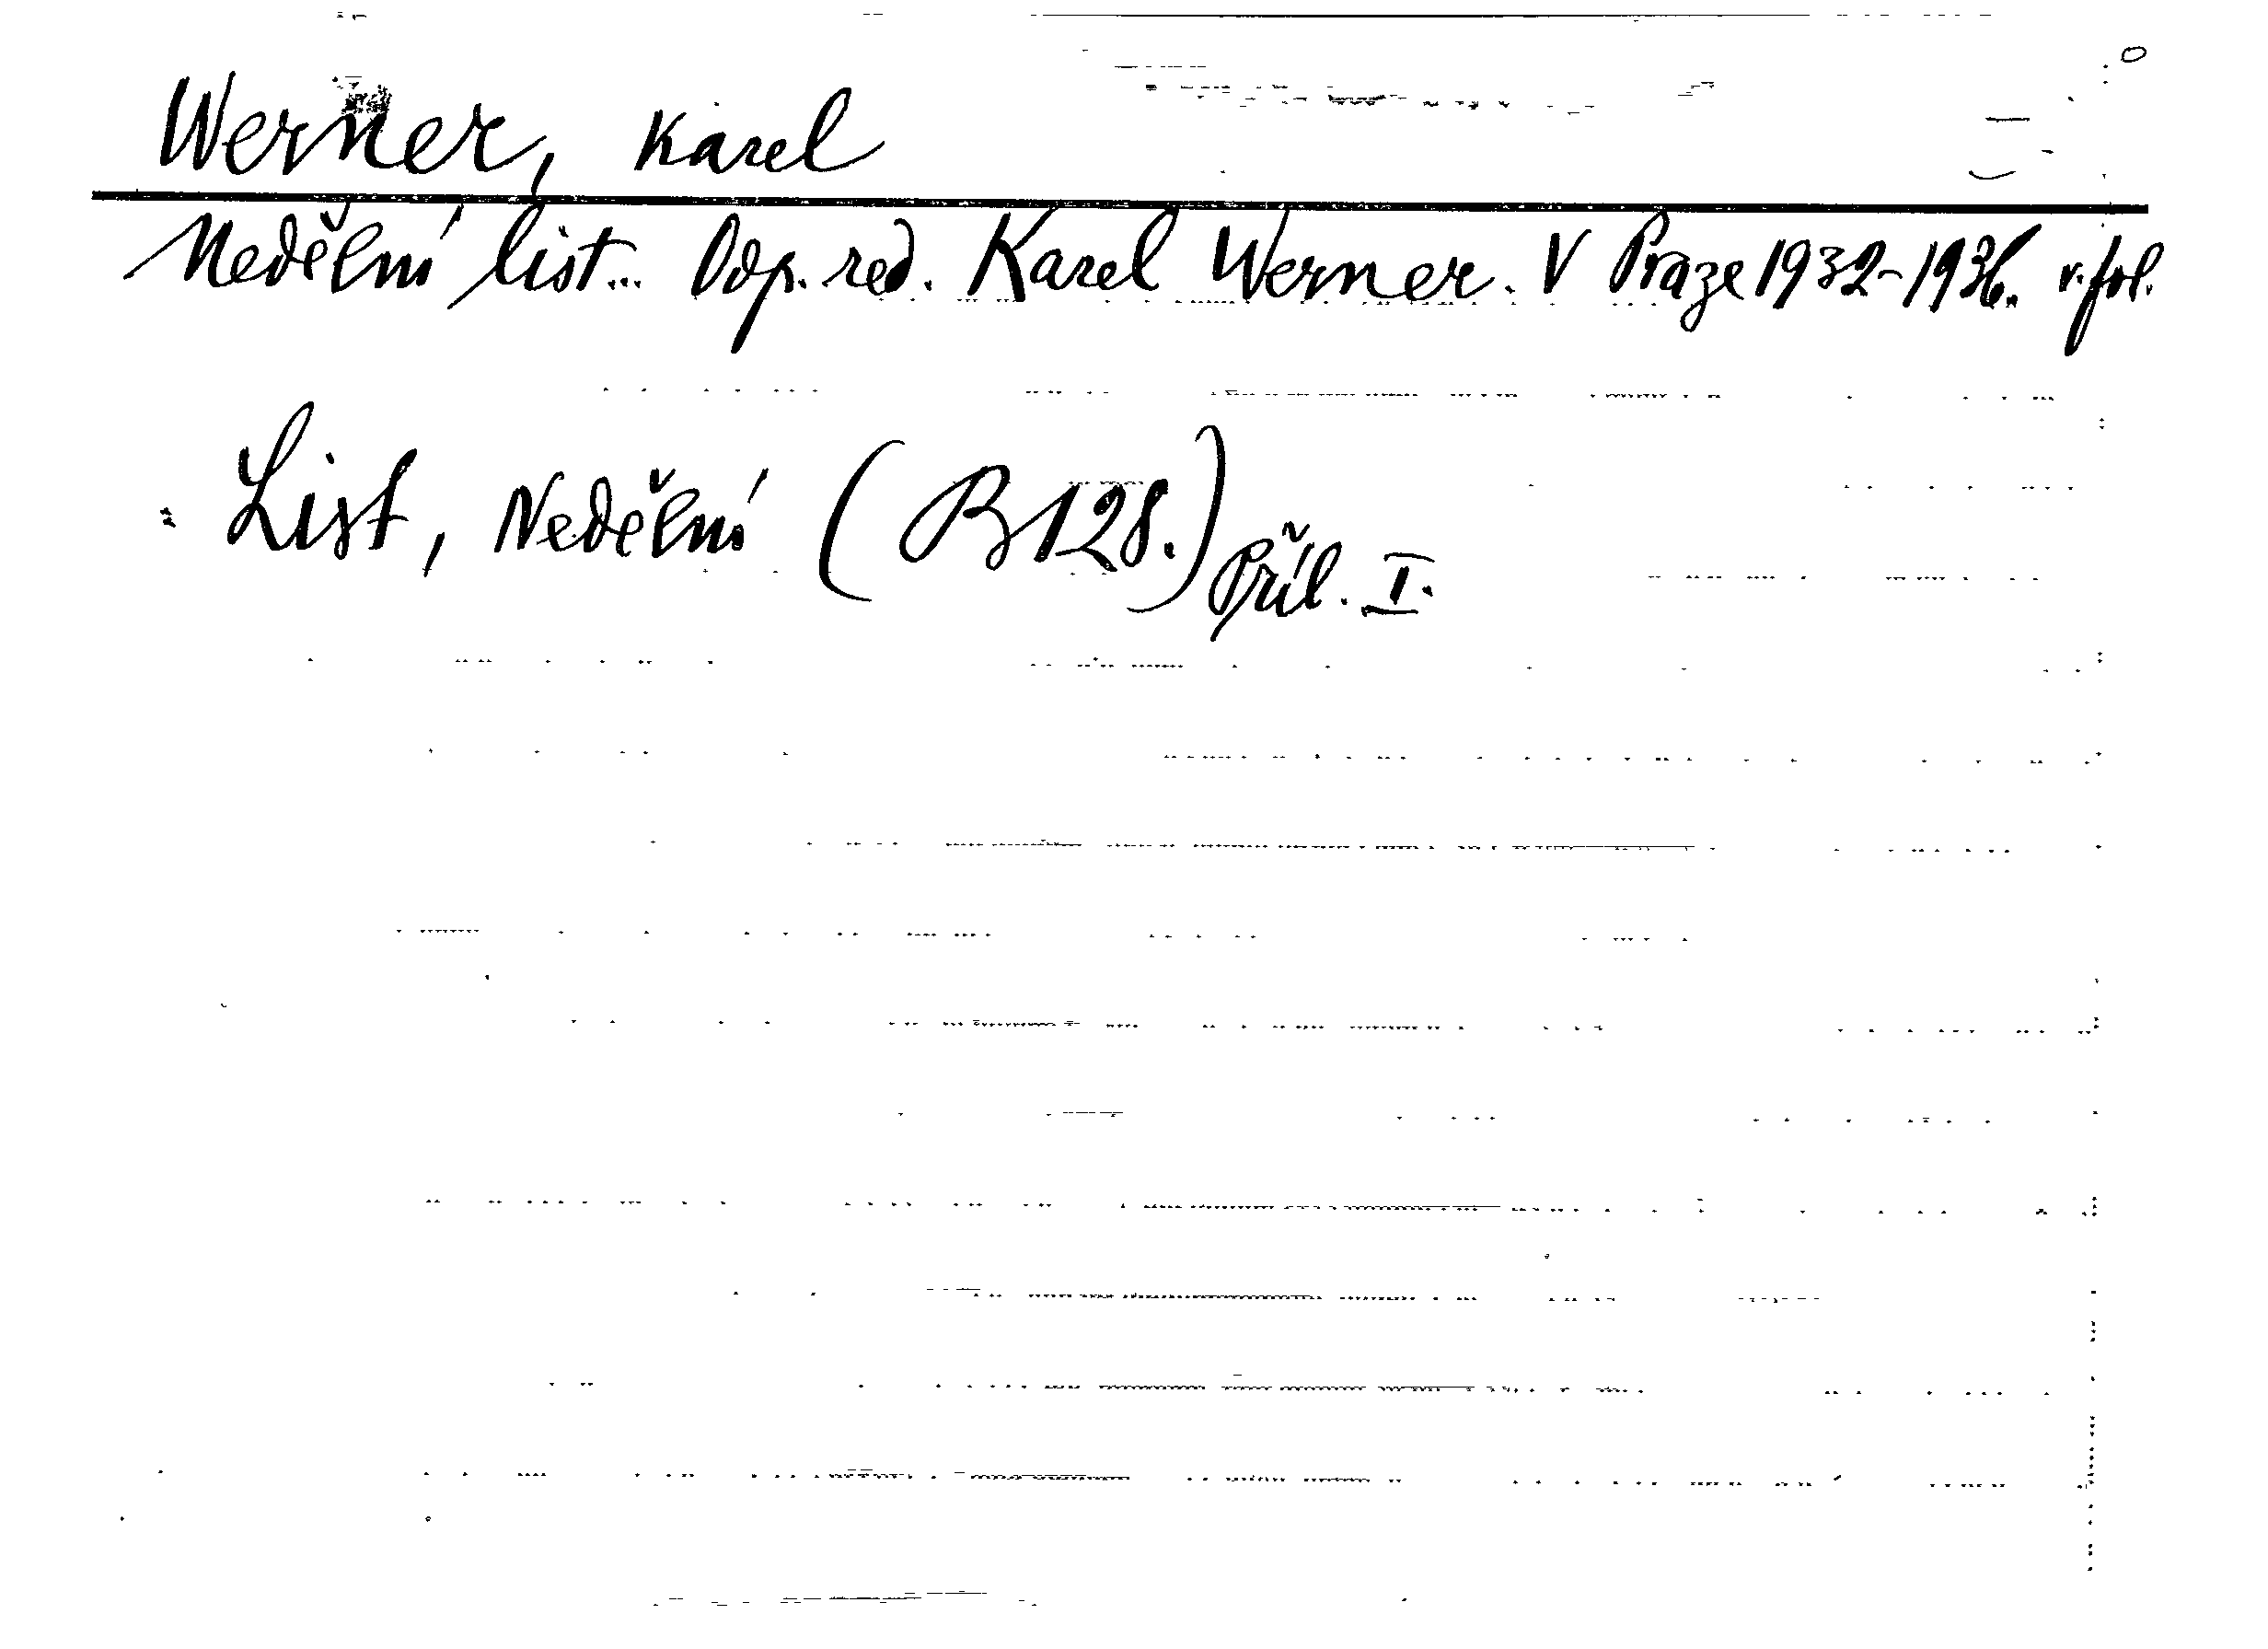 Werner, Karel
Nedělní list... Odp. red. Karel Werner. V Praze 1932-1936. v. fol.
: List, Nedělní (B 128.) Příl. I.